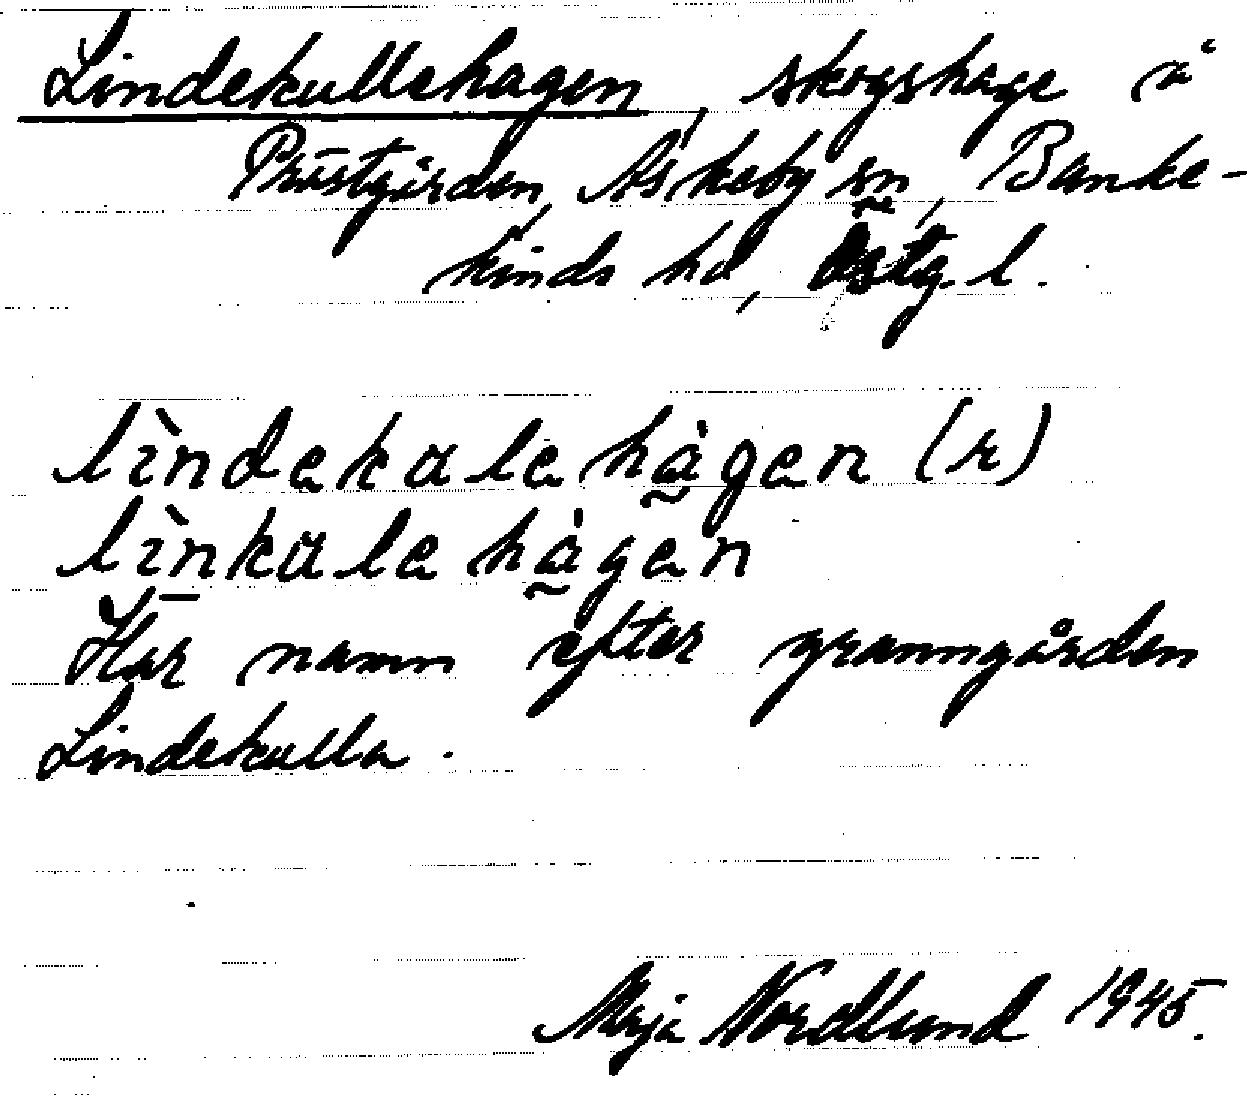 Lindekullehagen, skogshage å
Prästgården, Askeby sn, Banke-
kinds hd, Östg. l.
lìndekulehàgen (r)
lìnkulehàgen
Har namn efter granngården
Lindekulla.
Maja Nordlund 1945.